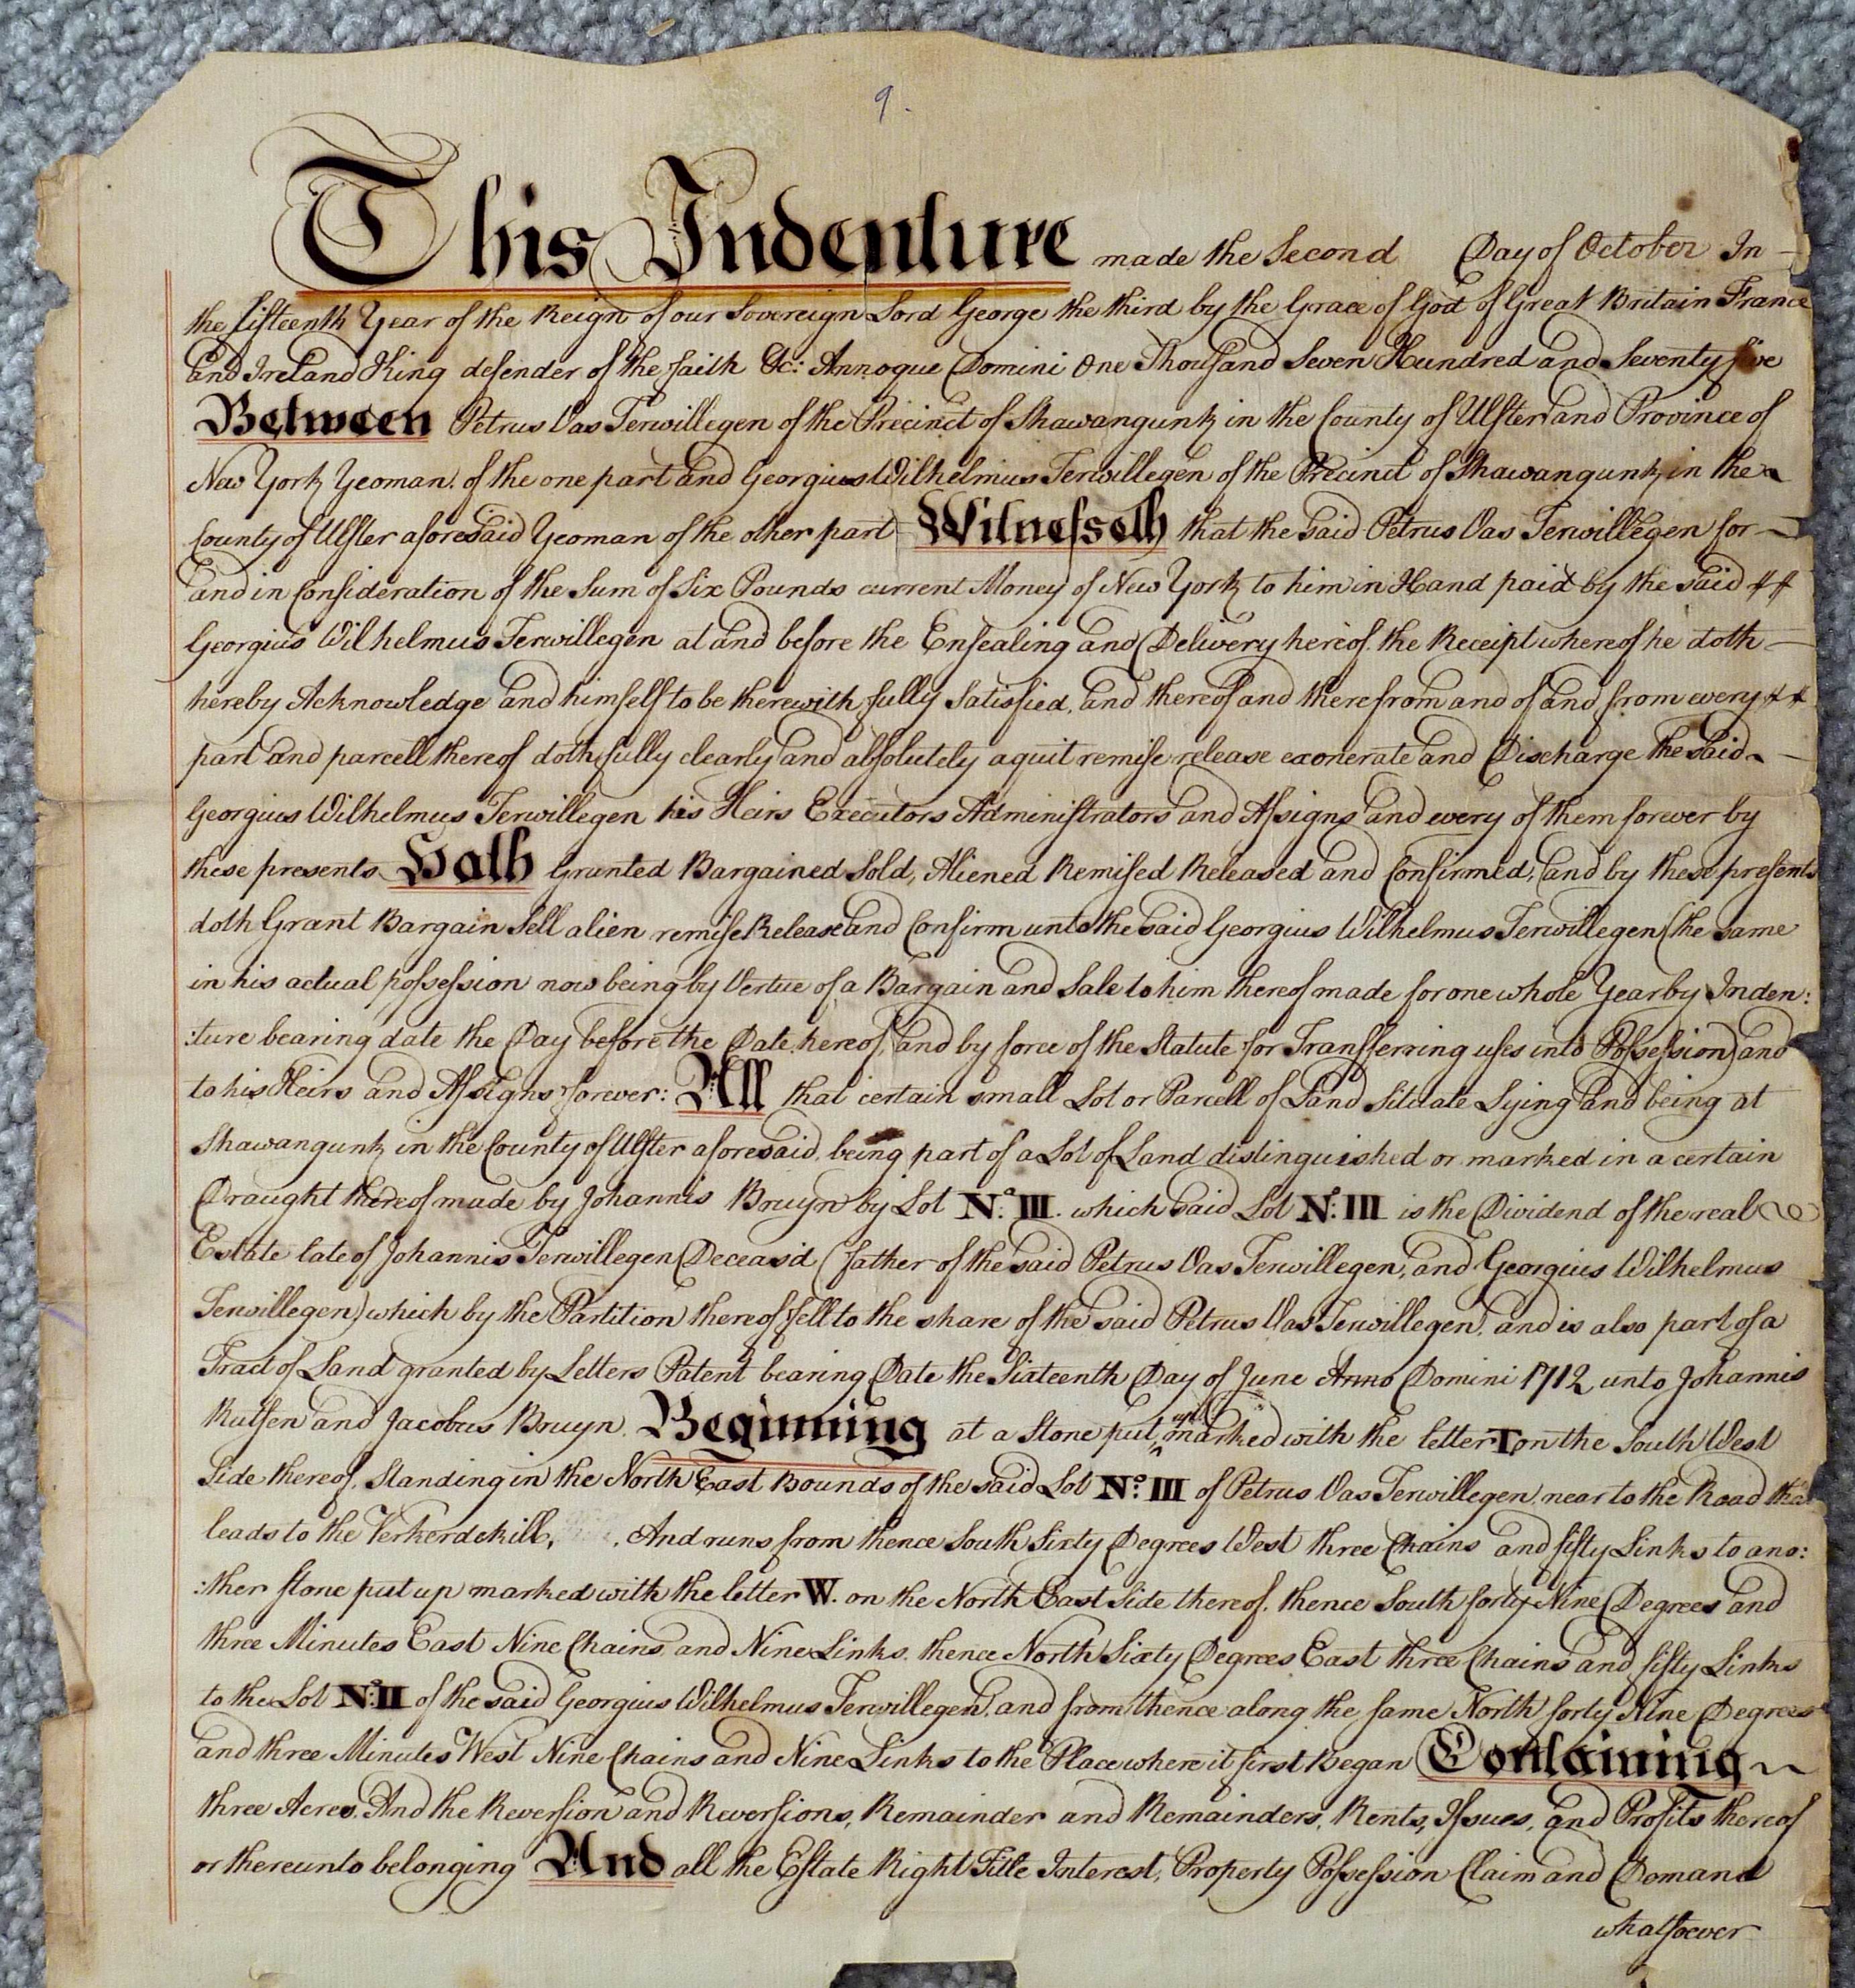 9.
This Indenture made the Second Day of October In
the fifteenth Year of the Reign of our Sovereign Lord George the third by the Grace of God of Great Britain France
and Ireland King defender of the faith &c: Annoque Domini One Thousand Seven Hundred and Seventy five
Between Petrus Vas Terwillegen of the Precinct of Shawangunk in the County of Ulster and Province of
New York Yeoman. of the one part and Georgius Wilhelmus Terwillegen of the Precinct of Shawangunk in the
County of Ulster aforesaid Yeoman of the other part Witnesseth that the said Petrus Vas Terwillegen for
and in Consideration of the Sum of Six Pounds current Money of New York to him in Hand paid by the said
Georgius Wilhelmus Terwillegen at and before the Ensealing and Delivery hereof. the Receipt whereof he doth
hereby Acknowledge and himself to be therewith fully Satisfied, and thereof and therefrom and of and from every
part and parcell thereof doth fully clearly and absolutely aquit remise release exonerate and Discharge the said
Georgius Wilhelmus Terwillegen his Heirs Executors Administrators and Assigns and every of them forever by
these presents Hath Granted Bargained Sold, Aliened Remised Released and Confirmed, and by these presents
doth Grant Bargain Sell alien remise Release and Confirm unto the said Georgius Wilhelmus Terwillegen (the same
in his actual possession now being by Vertue of a Bargain and Sale to him thereof made for one whole Year by Inden:
:ture bearing date the Day before the Date hereof, and by force of the Statute for Transferring uses into Possession) and
to his Heirs and Assigns forever: All that certain small Lot or Parcell of Land Situate Lying and being at
Shawangunk in the County of Ulster aforesaid being part of a Lot of Land distinguished or marked in a certain
Draught thereof made by Johannis Bruyn by Lot No. III. which said Lot No. III is the Dividend of the real
Estate late of Johannis Terwillegen Deceas'd (father of the said Petrus Vas Terwillegen, and Georgius Wilhelmus
Terwillegen) which by the Partition thereof fell to the share of the said Petrus Vas Terwillegen, and is also part of a
Tract of Land granted by Letters Patent bearing Date the Sixteenth Day of June Anno Domini 1712 unto Johannis
Rutsen and Jacobus Bruyn. Beginning at a Stone put up marked with the letter T on the South West
Side thereof, Standing in the North East Bounds of the said Lot No. III of Petrus Vas Terwillegen near to the Road that
leads to the Verkerdekill, . And runs from thence South Sixty Degrees West three Chains and fifty Links to ano:
:ther stone put up marked with the letter W. on the North East Side thereof. thence South forty Nine Degrees and
three Minutes East Nine Chains and Nine Links, thence North Sixty Degrees East three Chains and fifty Links
to the Lot No. II of the said Georgius Wilhelmus Terwillegen, and from thence along the same North forty Nine Degrees
and three Minutes West Nine Chains and Nine Links to the Place where it first Began Containing
three Acres. And the Reversion and Reversions, Remainder and Remainders, Rents, Issues, and Profits thereof
or thereunto belonging And all the Estate Right Title Interest, Property Possession Claim and Demand
whatsoever